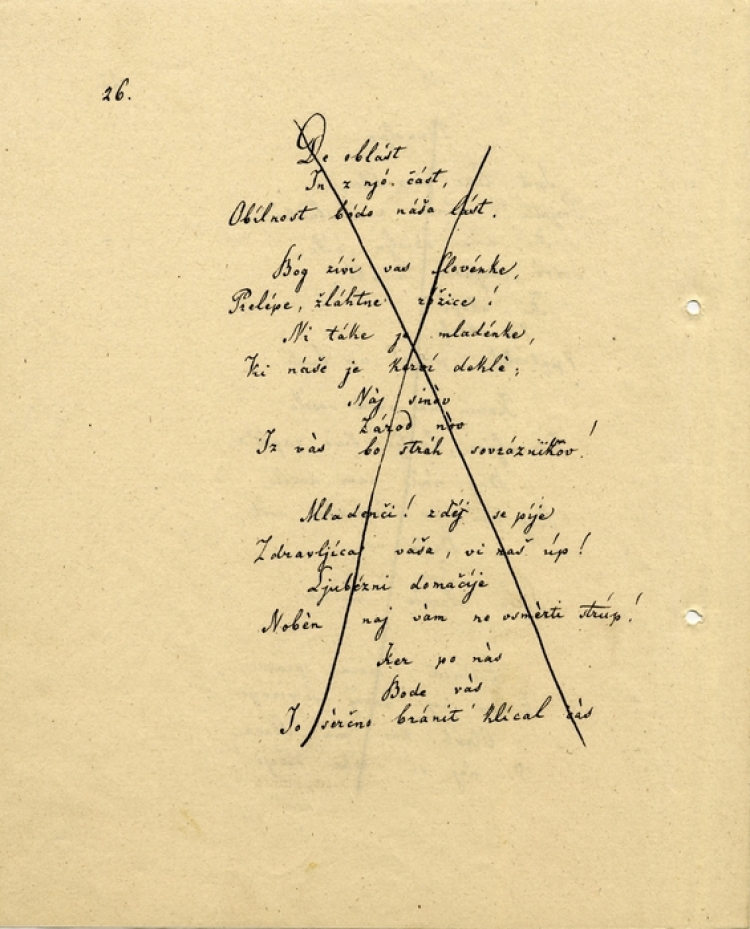 26.
De oblást
In z njó. část,
Obílnost bódo náša lást.
Bóg živi vas Slovénke,
Prelépe, žláhtne róžice!
Ni táke je mladénke,
Ki náše je kerví deklè;
Nàj sinòv
Zárod nòv
Iz vàs bo stráh sovrážnikòv!
Mladenči! zdéj se píje
Zdravljíca váša, vi naš úp!
Ljubézni domačíje
Nobèn naj vàm ne vsmèrti strúp!
Ker po nàs
Bode vàs
Jo sèrčno bránit' klícal čàs